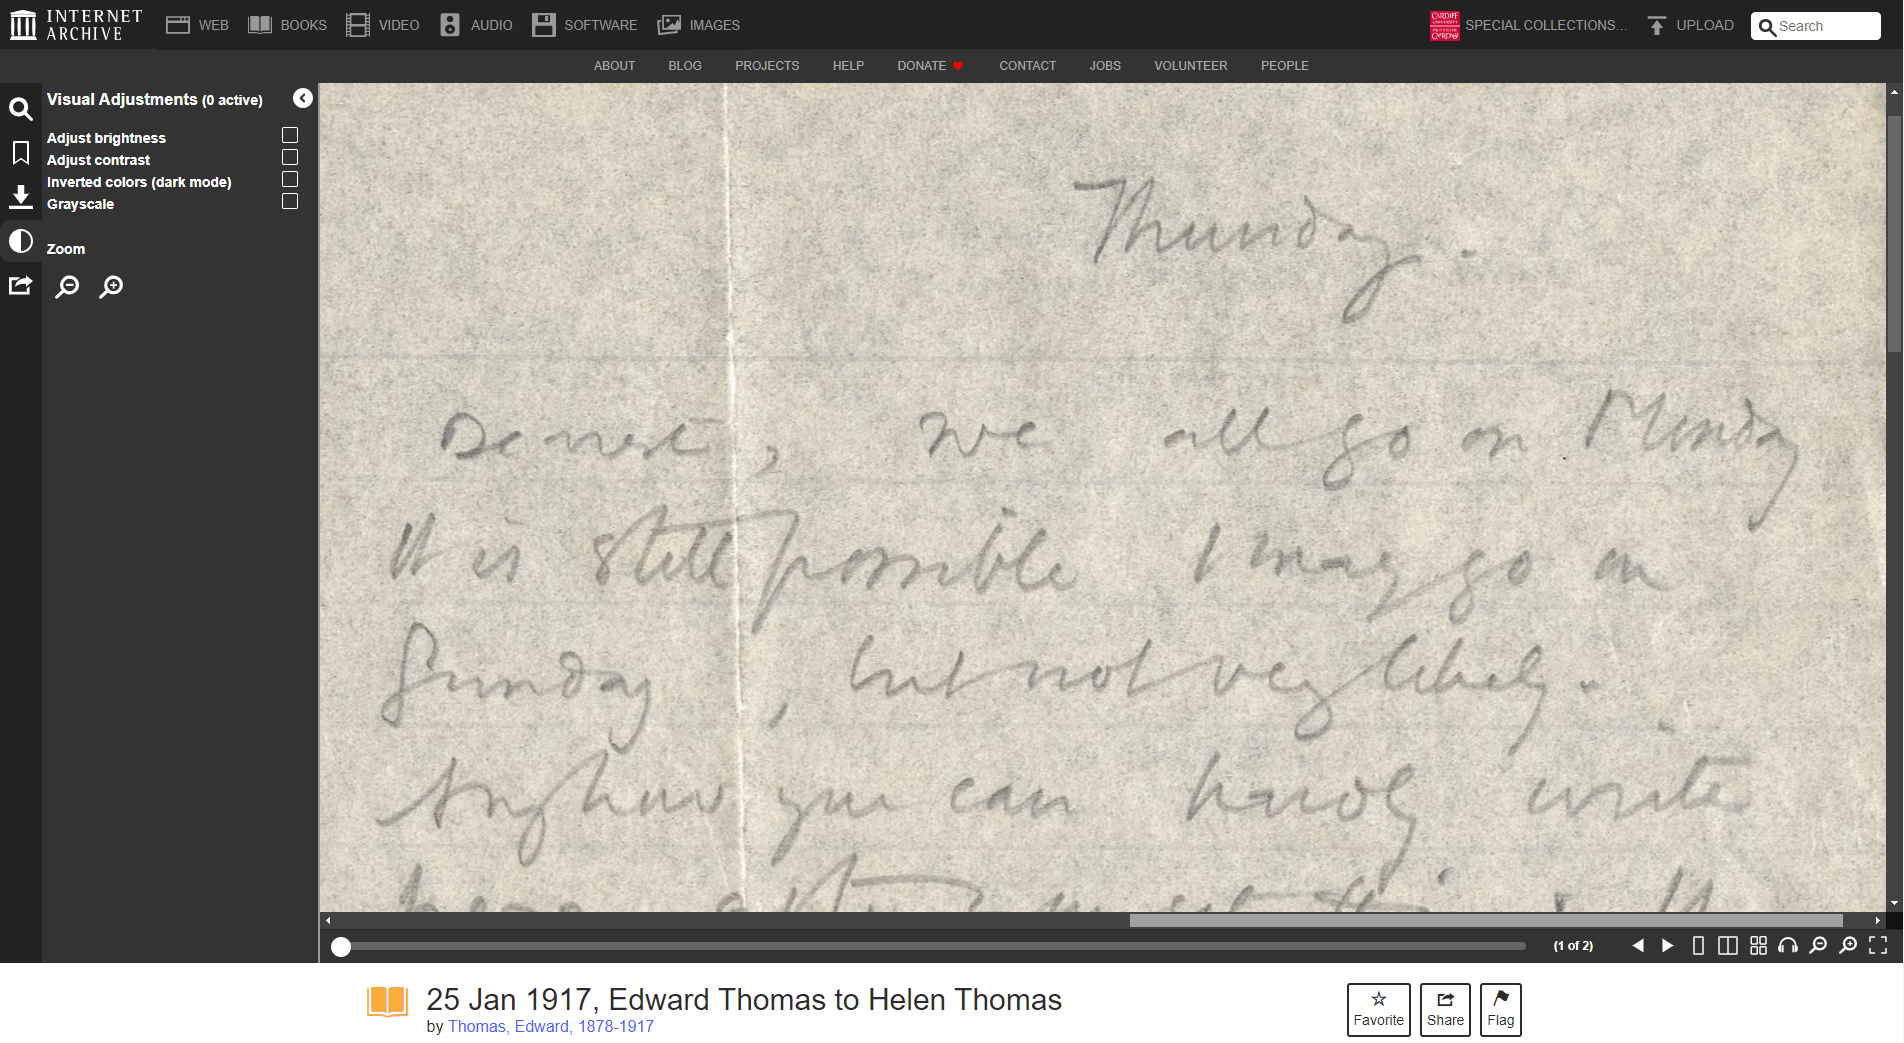 INTERNET ARCHIVE
WEB BOOKS VIDEO AUDIO SOFTWARE IMAGES
CARDIFF UNIVERSITY PRIFYSGOL CAERDYDD
SPECIAL COLLECTIONS... UPLOAD Search
ABOUT BLOG PROJECTS HELP DONATE CONTACT JOBS VOLUNTEER PEOPLE
Visual Adjustments (0 active)
Adjust brightness
Adjust contrast
Inverted colors (dark mode)
Grayscale
Zoom
Thursday.
Dearest, We all go on Monday
It is still possible I may go on
Sunday, but not very likely.
Anyhow you can hardly write
here after
(1 of 2)
25 Jan 1917, Edward Thomas to Helen Thomas
by Thomas, Edward, 1878-1917
Favorite Share Flag